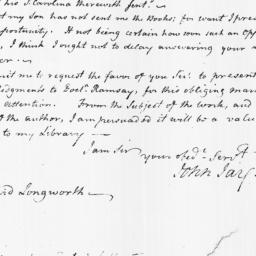 his S. Carolina therewith sent.
my Son has not sent me the Books; for want I pres
opportunity. It not being certain how soon such an Opp
, I think I ought not to delay answering your
er.
mit me to request the favor of you Sir: to present
ledgments to Doctr. Ramsay, for this obliging mark
attention. From the Subject of the work, and
of the author, I am persuaded it will be a valu
to my Library —
I am Sir
your obedt. Servt.
John Jay
id Longworth